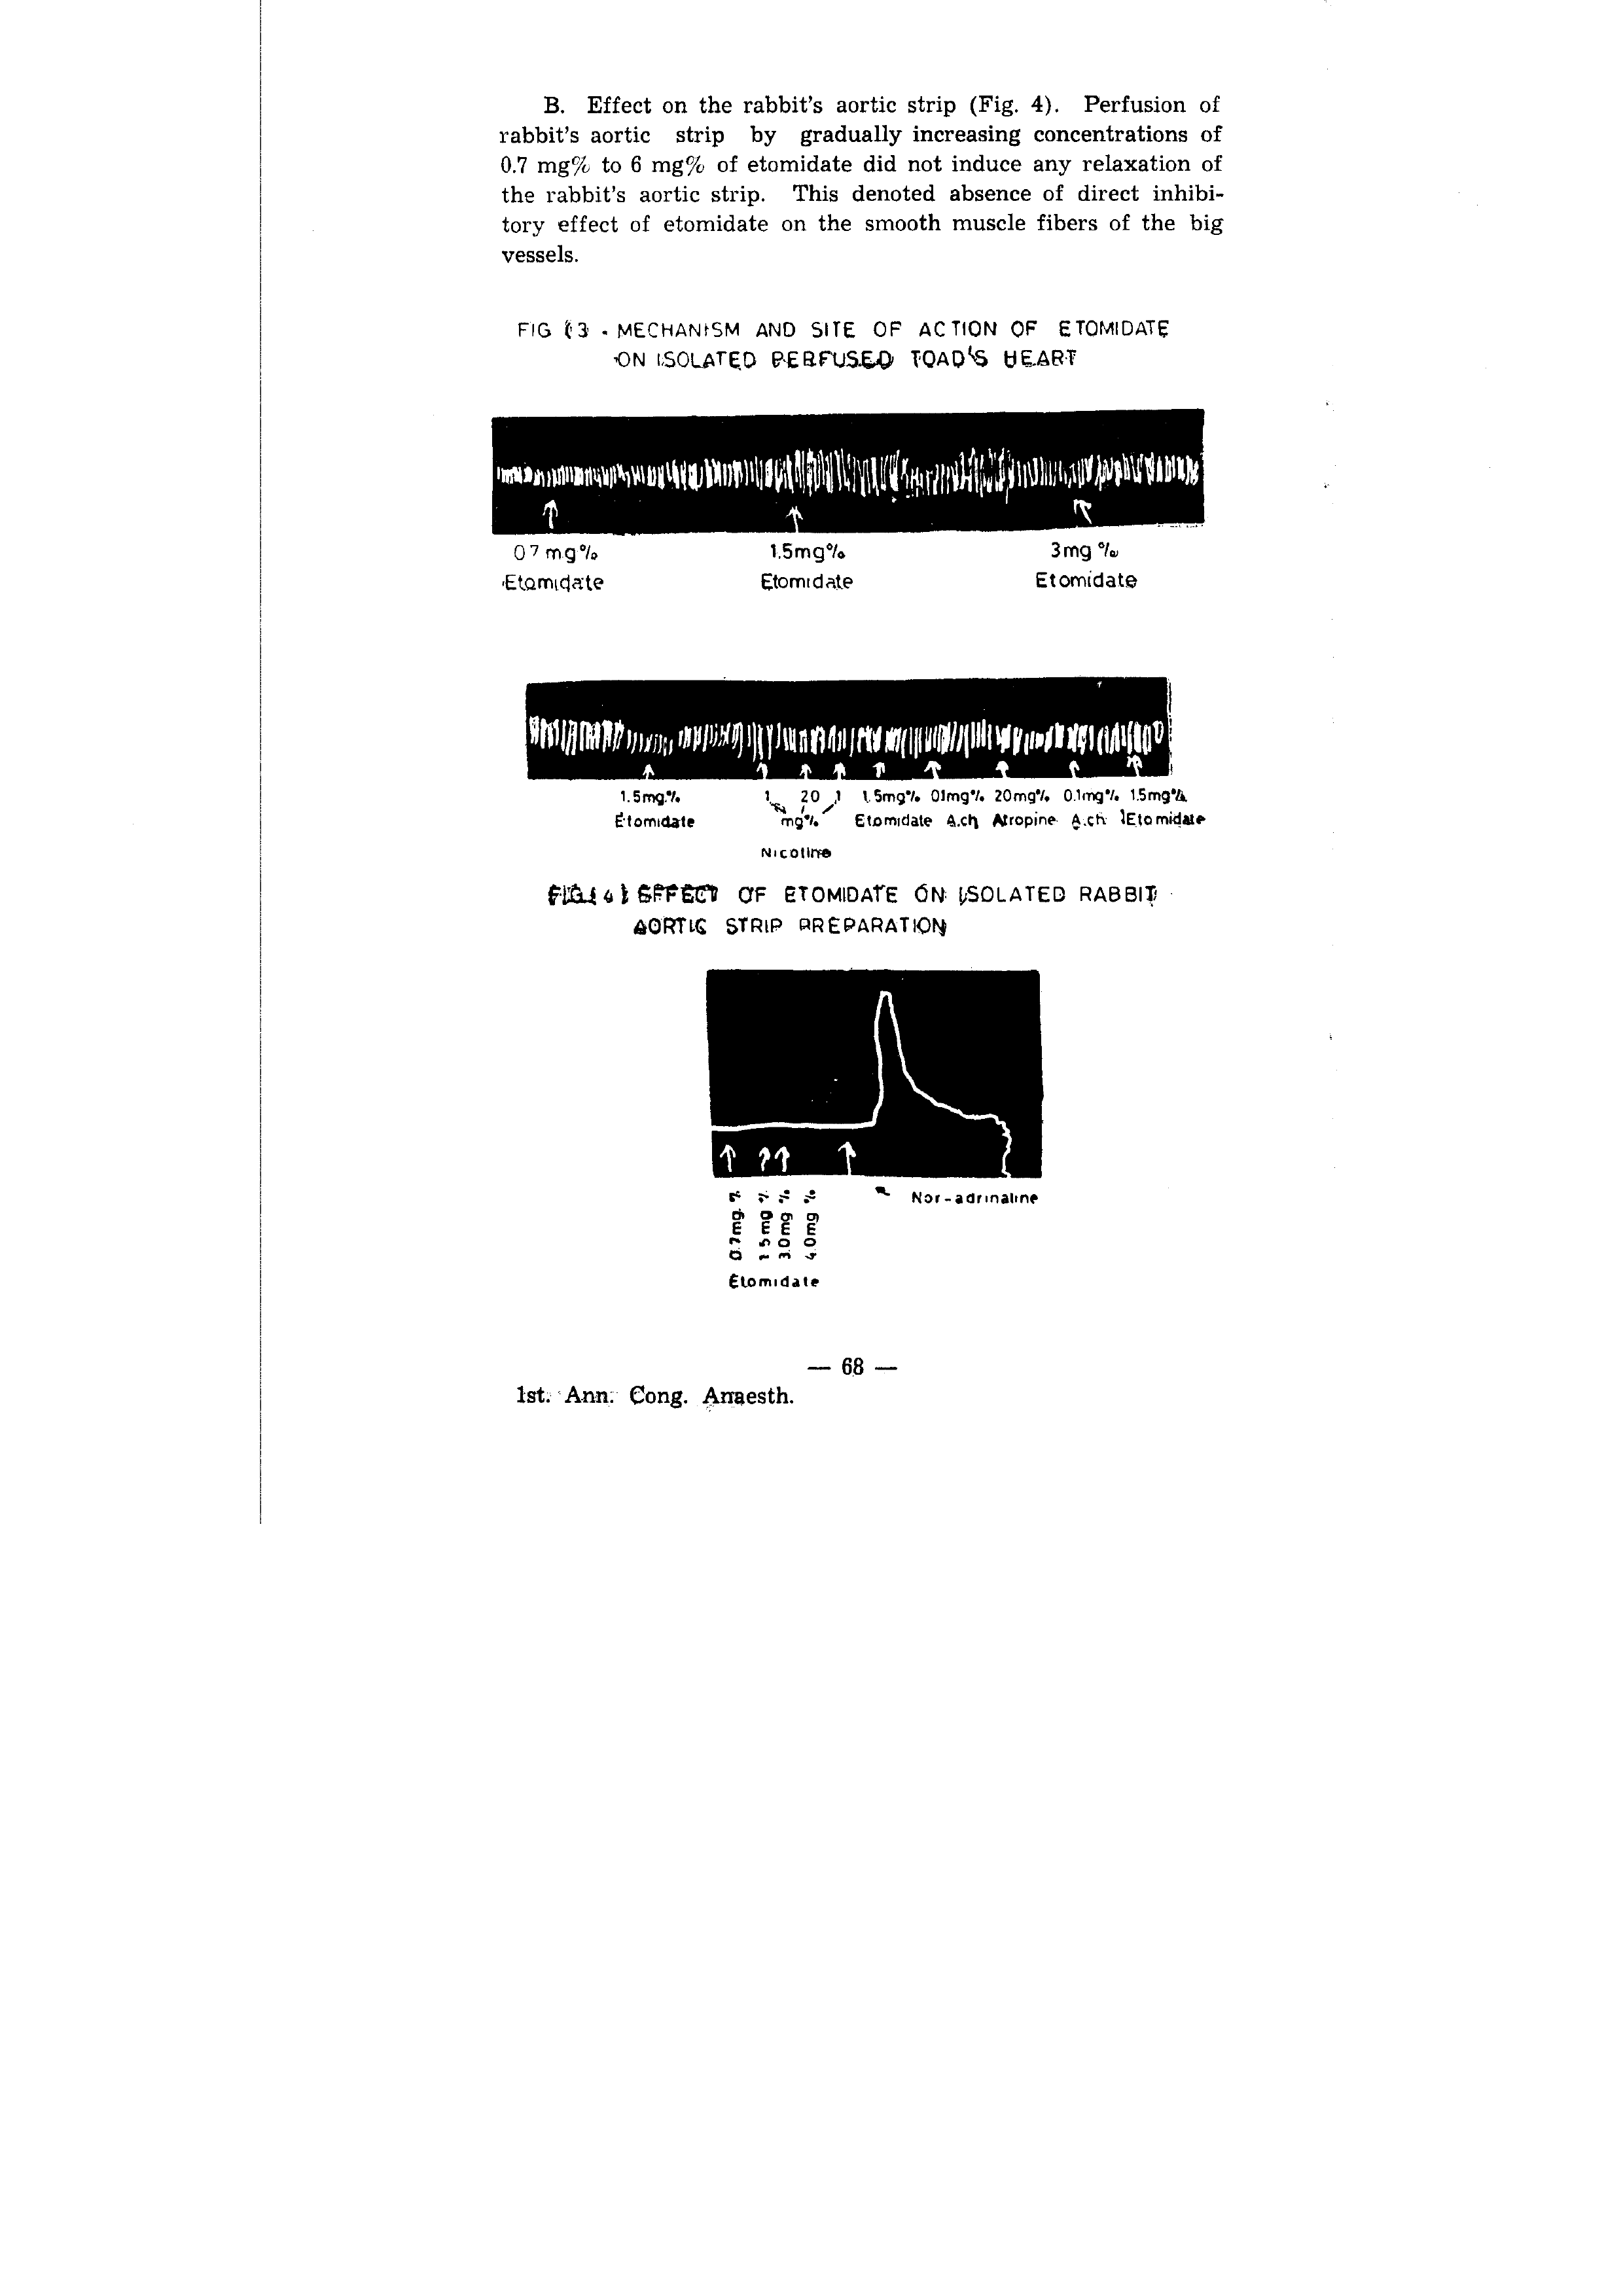 B. Effect on the rabbit's aortic strip (Fig. 4). Perfusion of
rabbit's aortic strip by gradually increasing concentrations of
0.7 mg% to 6 mg% of etomidate did not induce any relaxation of
the rabbit's aortic strip. This denoted absence of direct inhibi-
tory effect of etomidate on the smooth muscle fibers of the big
vessels.
FIG (3 - MECHANISM AND SITE OF ACTION OF ETOMIDATE
ON ISOLATED PERFUSED TOAD'S HEART
0 7 mg% 1.5mg% 3mg %
Etomidate Etomidate Etomidate
1.5mg% 1 20 1 1.5mg% 01mg% 20mg% 0.1mg% 1.5mg%
Etomidate mg% Etomidate A.ch Atropine A.ch Etomidate
Nicotine
FIG (4) EFFECT OF ETOMIDATE ON ISOLATED RABBIT
AORTIC STRIP PREPARATION
0.7mg % 1 5 mg % 3.0 mg % 4.0mg % Nor-adrinaline
Etomidate
— 68 —
1st. Ann. Cong. Anaesth.